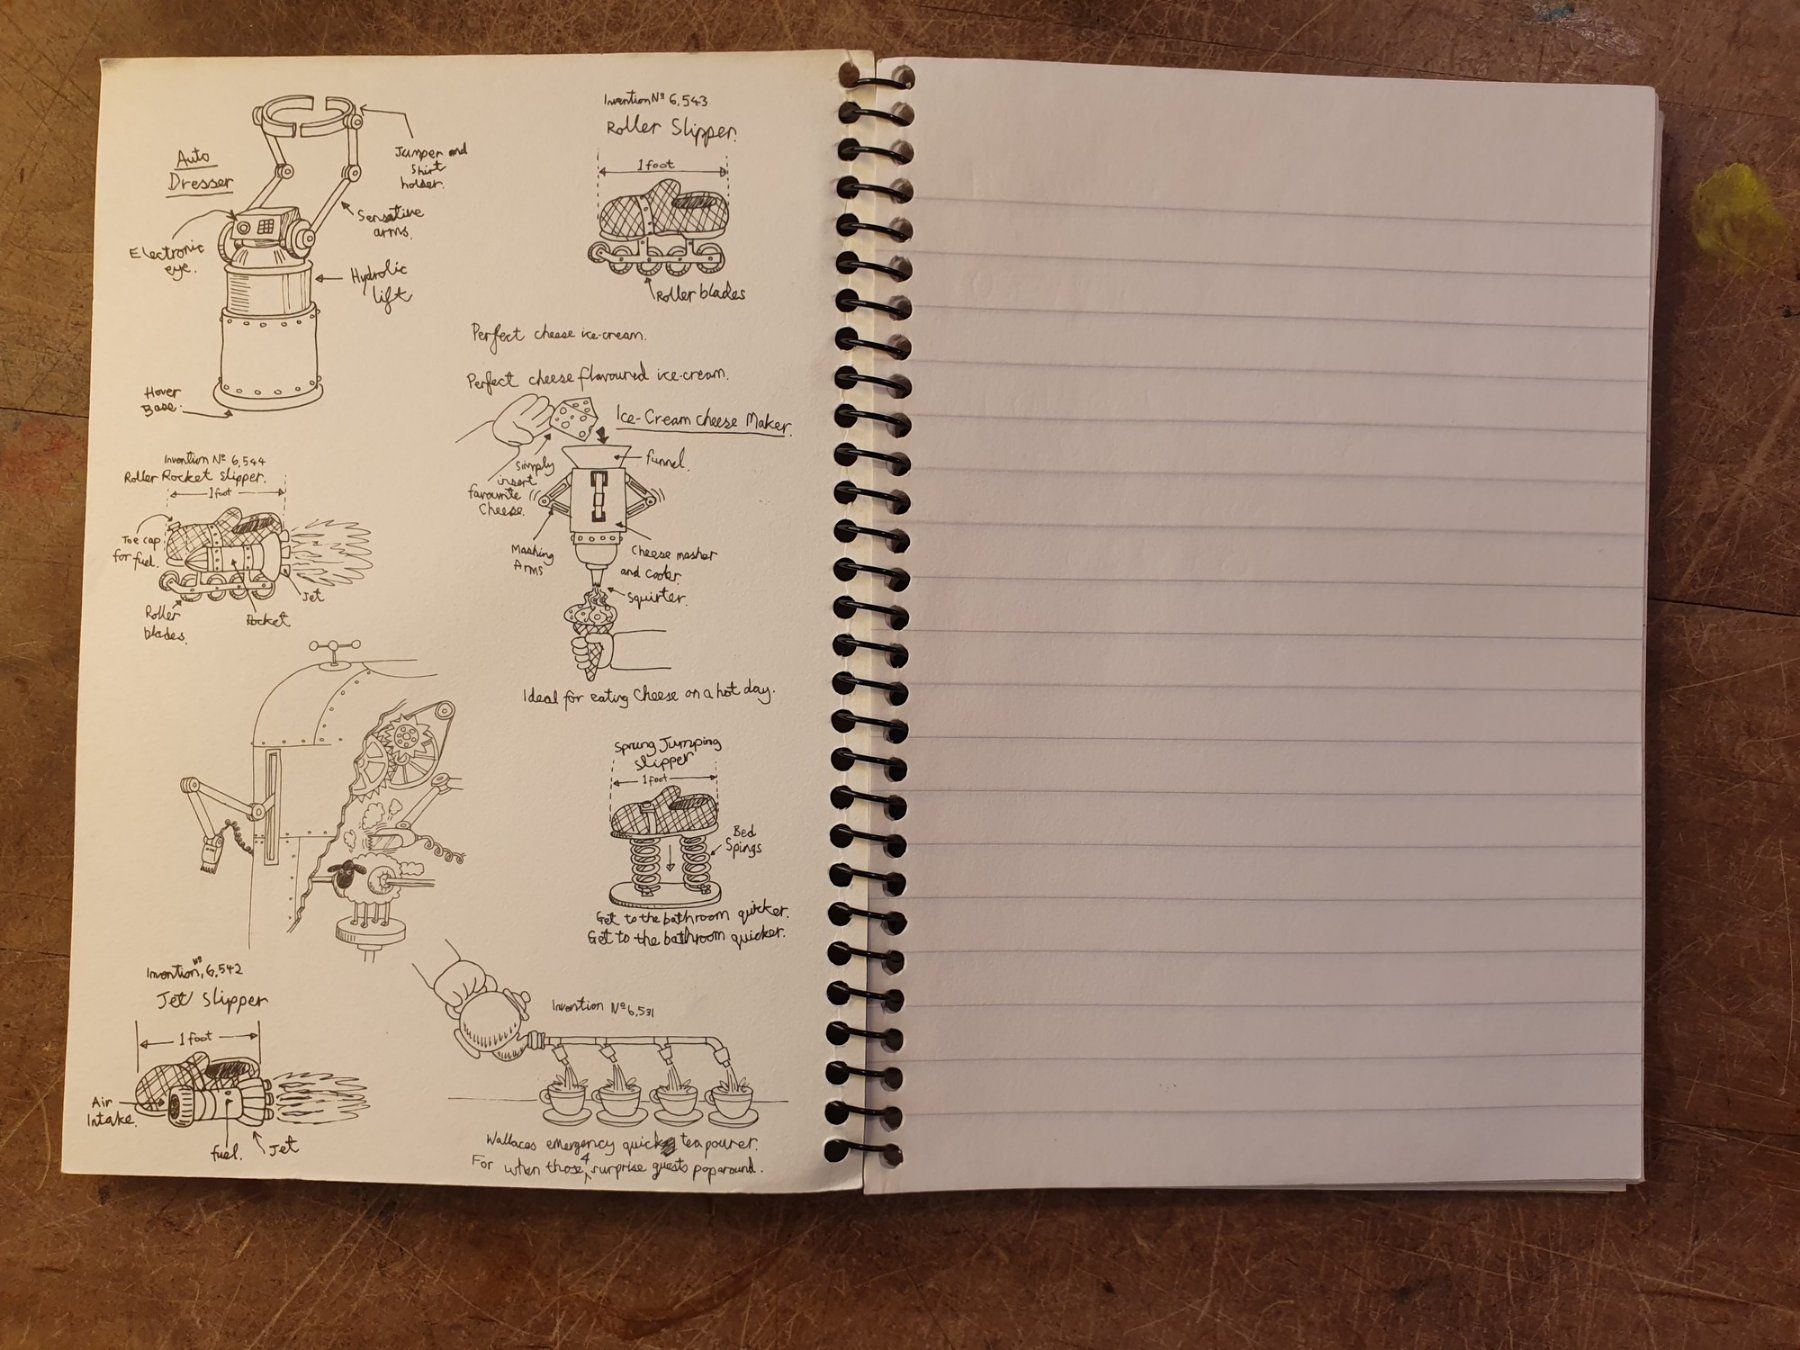 Auto
Dresser
Jumper and
Shirt
holder.
Sensative
arms.
Electronic
eye.
Hydrolic
lift
Hover
Base.
Invention Nº 6,543
Roller Slipper.
1 foot
Roller blades
Perfect cheese ice-cream.
Perfect cheese flavoured ice-cream.
Ice-Cream Cheese Maker.
funnel.
Simply
insert
favourite
Cheese.
Mashing
Arms
Cheese masher
and cooler.
Squirter.
Ideal for eating Cheese on a hot day.
Invention Nº 6,544
Roller Rocket Slipper.
1 foot
Toe cap
for fuel.
Jet
Roller
blades.
Rocket
Sprung Jumping
Slipper
1 foot
Bed
Spings
Get to the bathroom quicker.
Get to the bathroom quicker.
Invention Nº 6,542
Jet Slipper
1 foot
Air
Intake.
fuel.
Jet
Invention Nº 6,531
Wallaces emergency quick tea pourer.
For when those 4 surprise guests pop around.